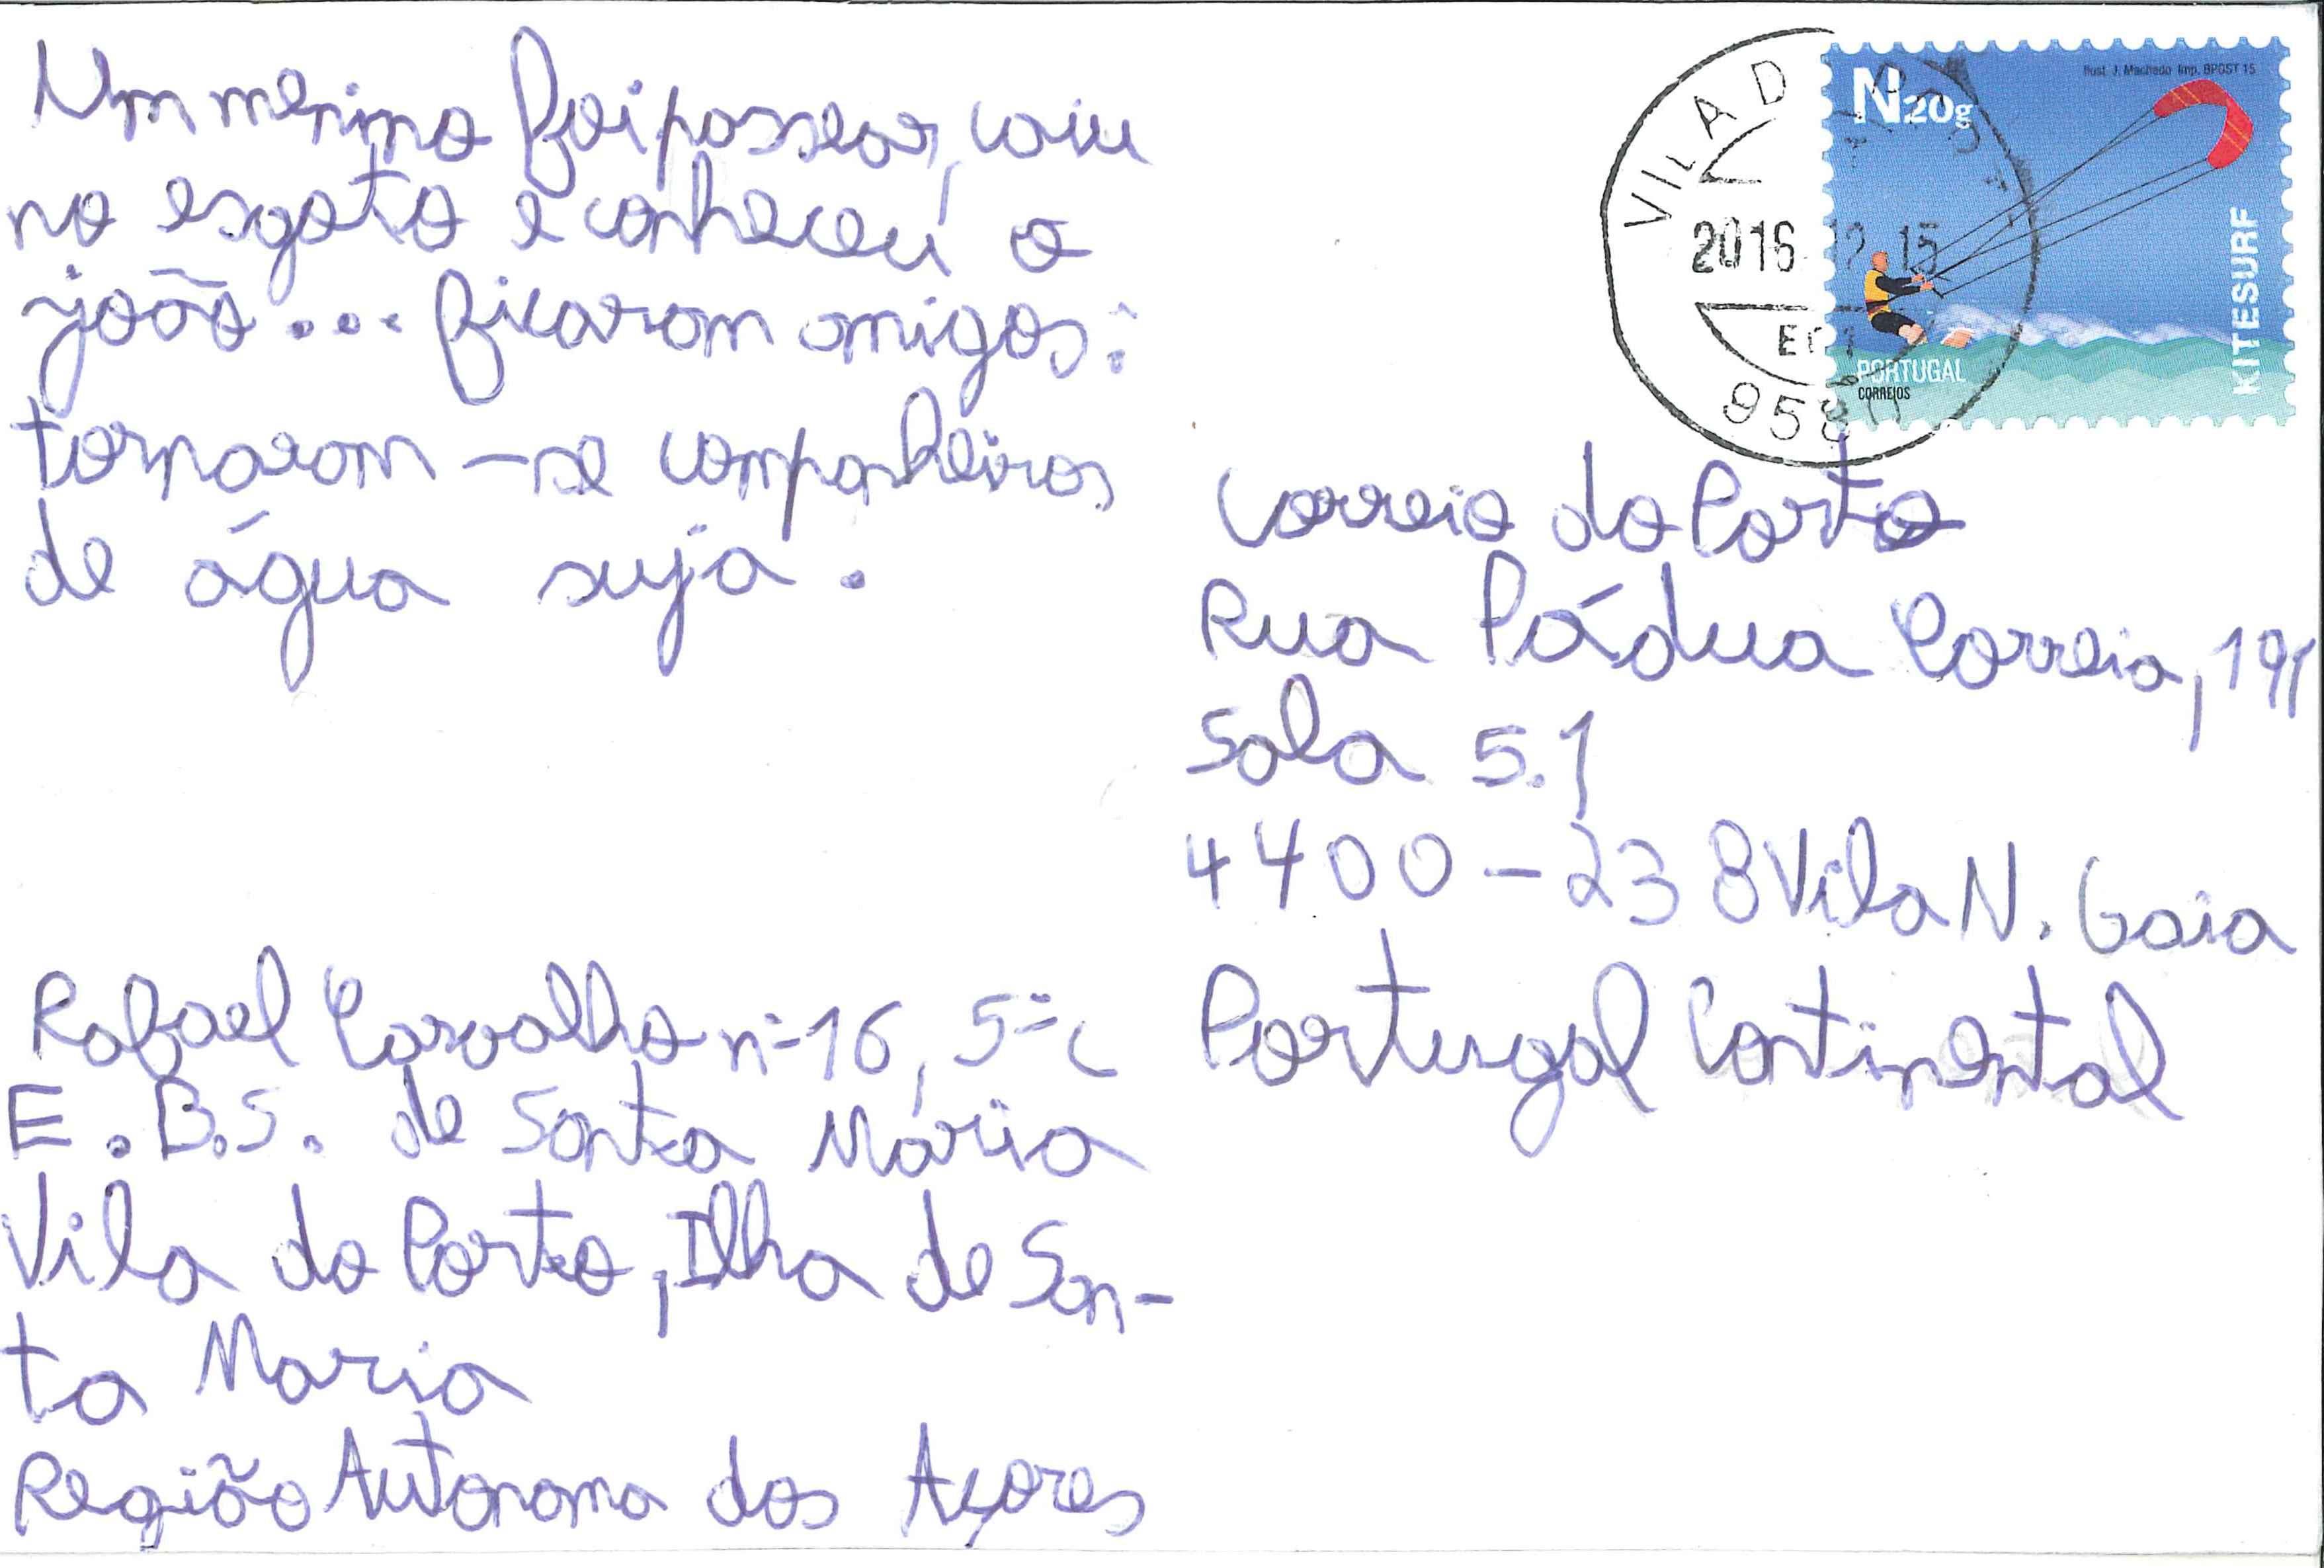 Um menino foi passear, caiu
no esgoto e conheceu o
joão... ficaram amigos:
tornaram-se companheiros
de água suja.
Rafael Carvalho nº16, 5ºc
E.B.S. de Santa Maria
Vila do Porto, Ilha de San-
ta Maria
Região Autonoma dos Açores
VILA D
2016 12 15
958
N20g
Ilust. J. Machado Imp. BPOST 15
KITESURF
PORTUGAL
CORREIOS
Correio do Porto
Rua Pádua Correia, 191
Sala 5.1
4400-238 Vila N. Gaia
Portugal Continental